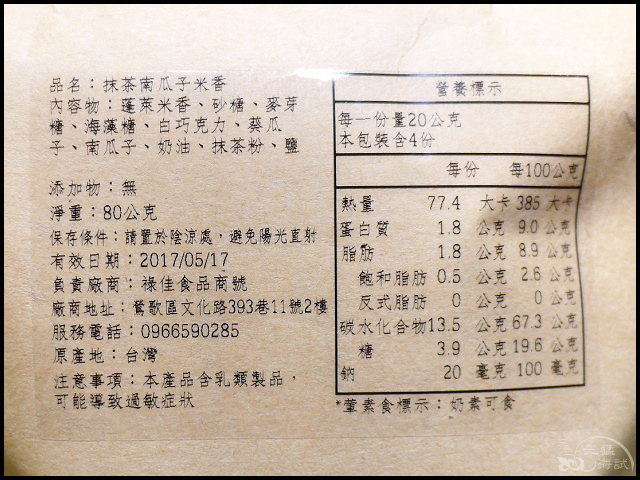 品名：抹茶南瓜子米香
內容物：蓬萊米香、砂糖、麥芽
糖、海藻糖、白巧克力、葵瓜
子、南瓜子、奶油、抹茶粉、鹽
添加物：無
淨重：80公克
保存條件：請置於陰涼處，避免陽光直射
有效日期：2017/05/17
負責廠商：祿佳食品商號
廠商地址：鶯歌區文化路393巷11號2樓
服務電話：0966590285
原產地：台灣
注意事項：本產品含乳類製品，
可能導致過敏症狀
營養標示
每一份量20公克
本包裝含4份
每份 每100公克
熱量 77.4 大卡 385 大卡
蛋白質 1.8 公克 9.0 公克
脂肪 1.8 公克 8.9 公克
飽和脂肪 0.5 公克 2.6 公克
反式脂肪 0 公克 0 公克
碳水化合物 13.5 公克 67.3 公克
糖 3.9 公克 19.6 公克
鈉 20 毫克 100 毫克
*葷素食標示：奶素可食